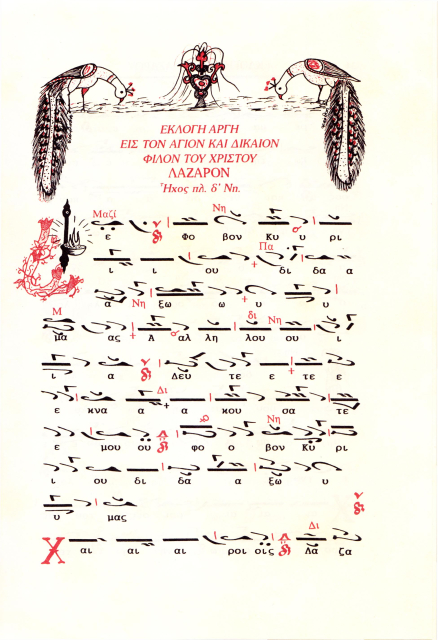 ΕΚΛΟΓΗ ΑΡΓΗ
ΕΙΣ ΤΟΝ ΑΓΙΟΝ ΚΑΙ ΔΙΚΑΙΟΝ
ΦΙΛΟΝ ΤΟΥ ΧΡΙΣΤΟΥ
ΛΑΖΑΡΟΝ
Ἦχος πλ. δ' Νη.
Μαζί Νη
ε Φο βον Κυ υ ρι
Πα
ι ι ου δι δα α
α Νη ξω ω υ υ
Μ δι Νη
μα ας Α αλ λη λου ου ι
ι α Δευ τε ε τε ε
Δι
ε κνα α α κου σα τε
Νη
ε μου ου φο ο βον Κυ ρι
ι ου δι δα α ξω υ
υ μας
Δι
Χ αι αι αι ροι οις Λα ζα